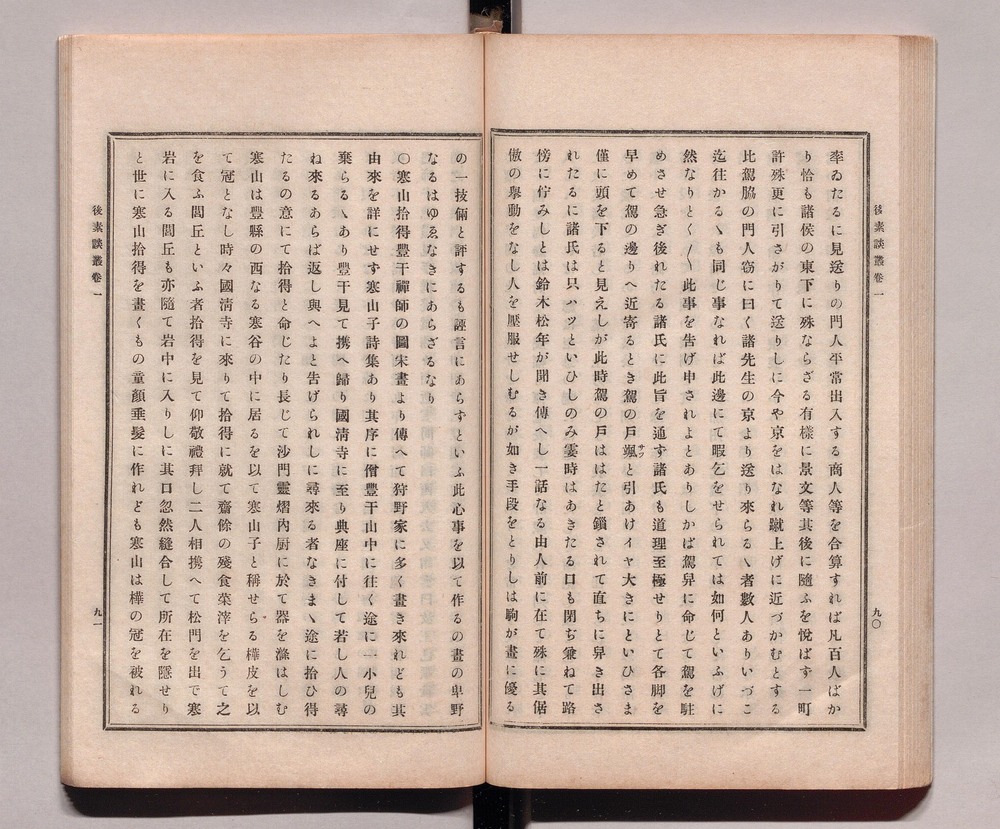 後素談叢卷一
九〇
率ゐたるに見送りの門人平常出入する商人等を合算すれば凡百人ばか
り恰も諸侯の東下に殊ならざる有樣に景文等其後に隨ふを悅ばす一町
許殊更に引さがりて送りしに今や京をはなれ蹴上げに近づかむとする
比駕脇の門人窃に曰く諸先生の京より送り來らるゝ者數人ありいづこ
迄往かるゝも同じ事なれば此邊にて暇乞をせられては如何といふげに
然なりとく〳〵此事を告げ申されよとありしかば駕舁に命じて駕を駐
めさせ急ぎ後れたる諸氏に此旨を通す諸氏も道理至極せりとて各脚を
早めて駕の邊りへ近寄るとき駕の戸颯と引あけイヤ大きにといひさま
サツ
僅に頭を下ると見えしが此時駕の戸ははたと鎖されて直ちに舁き出さ
れたるに諸氏は只ハツといひしのみ霎時はあきたる口も閉ぢ兼ねて路
傍に佇みしとは鈴木松年が聞き傳へし一話なる由人前に在て殊に其倨
傲の擧動をなし人を壓服せしむるが如き手段をとりしは駒が畫に優る
の一技倆と評するも誣言にあらすといふ此心事を以て作るの畫の卑野
なるはゆゑなきにあらざるなり
〇寒山拾得豐干禪師の圖宋畫より傳へて狩野家に多く畫き來れども其
由來を詳にせず寒山子詩集あり其序に僧豐干山中に往く途に一小兒の
棄らるゝあり豐干見て携へ歸り國淸寺に至り典座に付して若し人の尋
ね來るあらば返し與へよと告げられしに尋來る者なきまゝ途に拾ひ得
たるの意にて拾得と命じたり長じて沙門靈熠內厨に於て器を滌はしむ
寒山は豐縣の西なる寒谷の中に居るを以て寒山子と稱せらる樺皮を以
て冠となし時々國淸寺に來りて拾得に就て齋餘の殘食菜滓を乞うて之
を食ふ閭丘といふ者拾得を見て仰敬禮拜し二人相携へて松門を出で寒
岩に入る閭丘も亦隨て岩中に入りしに其口忽然縫合して所在を隱せり
と世に寒山拾得を畫くもの童顏垂髮に作れども寒山は樺の冠を被れる
後素談叢卷一
九一